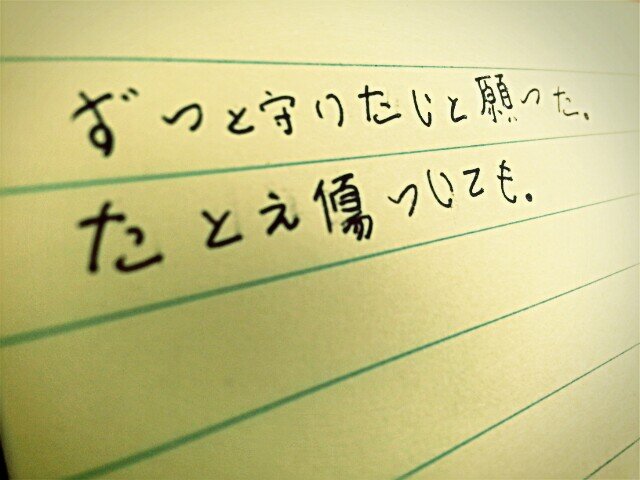 ずっと守りたいと願った。
たとえ傷ついても。